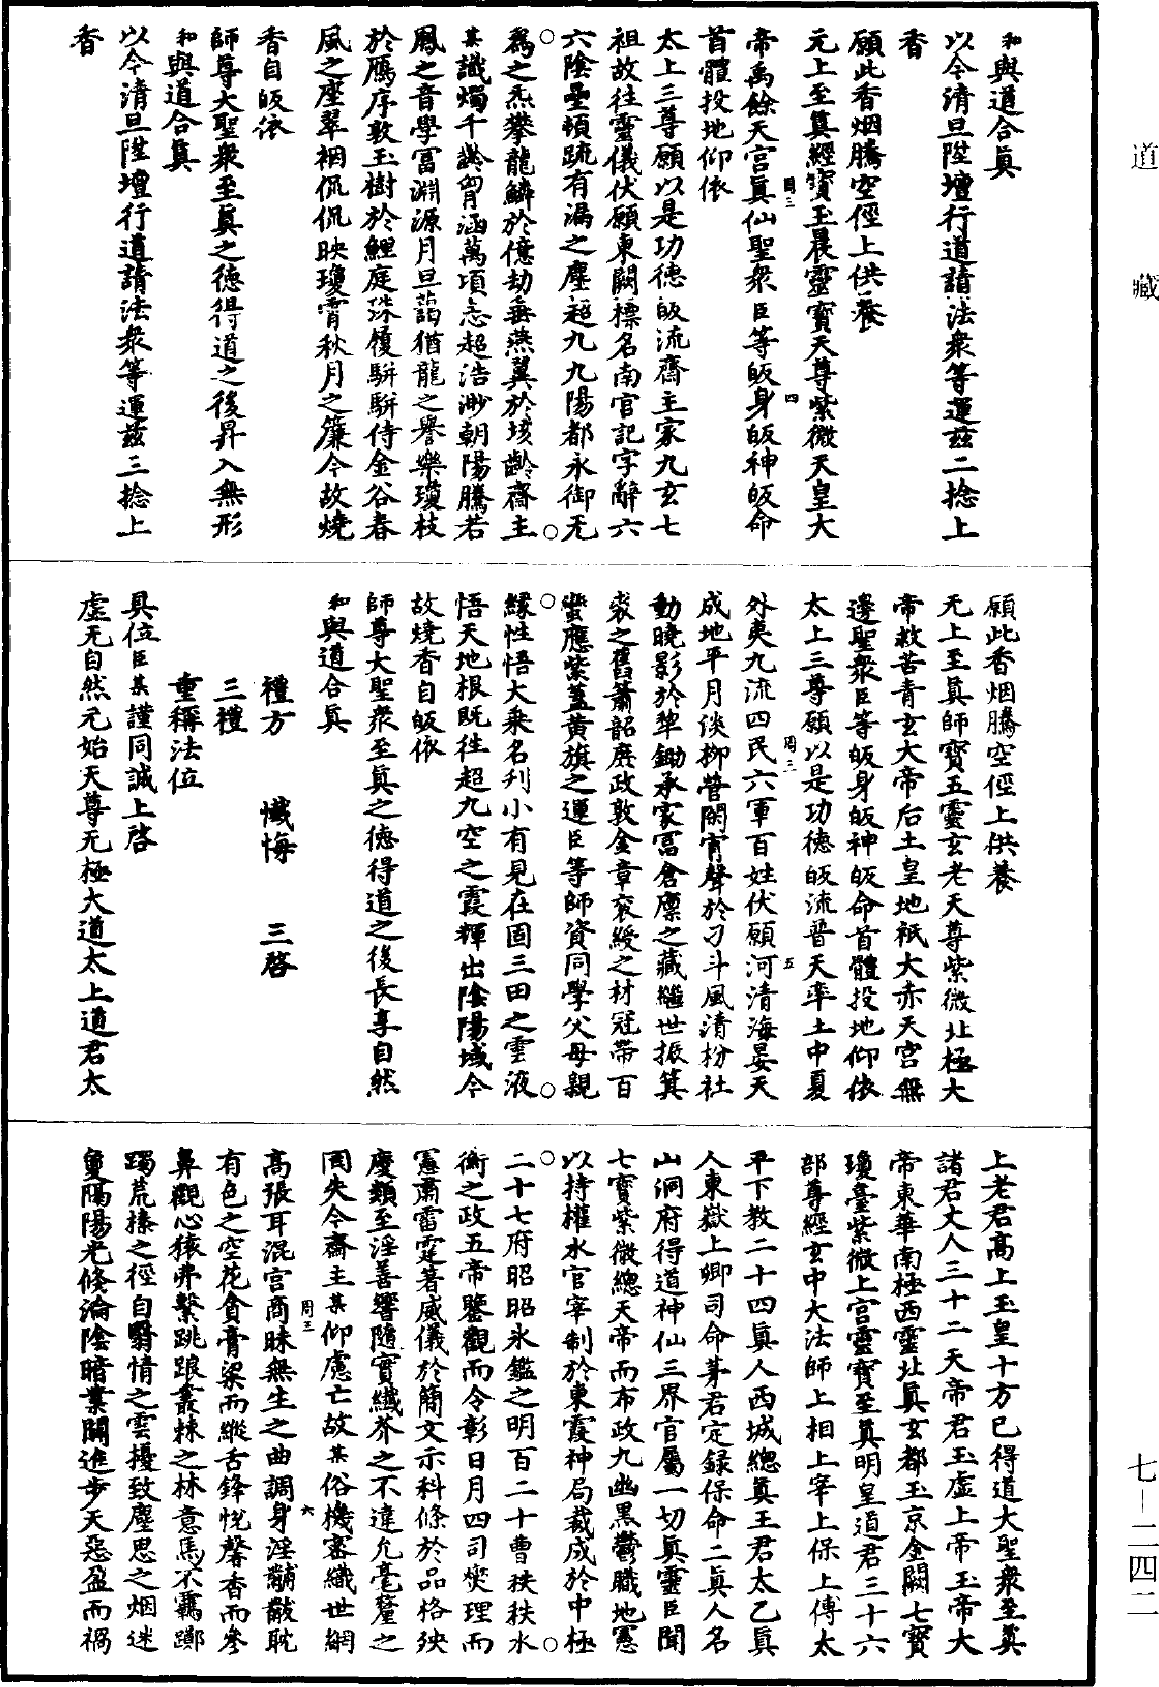 道藏
和與道合真
以今清旦陞壇行道請法衆等運兹二捻上
香
願此香烟騰空徑上供養
元上至真經寶玉晨靈寶天尊紫微天皇大
帝禹餘天宫真仙聖衆臣等皈身皈神皈命
首體投地仰依
太上三尊願以是功德皈流齋主家九玄七
祖故往靈儀伏願東闕標名南宫記字辭六
六陰壘頓䟽有漏之塵超九九陽都永御无
爲之炁攀龍鱗於億劫垂燕翼於垓齡齋主
某識燭千齡胷涵萬項志超浩渺朝陽騰若
鳳之音學冨淵源月旦藹猶龍之譽樂瓊枝
於鴈序敦玉樹於鯉庭珠履駢駢侍金谷春
風之座翠裀侃侃映瓊霄秋月之簾今故燒
香自皈依
師尊大聖衆至真之德得道之後昇入無形
和與道合真
以今清旦陞壇行道請法衆等運兹三捻上
香
願此香烟騰空徑上供養
无上至真師寶五靈玄老天尊紫微北極大
帝救苦青玄大帝后土皇地祇大赤天宫無
邊聖衆臣等皈身皈神皈命首體投地仰依
太上三尊願以是功德皈流普天率土中夏
外夷九流四民六軍百姓伏願河清海晏天
成地平月淡柳營閑宵聲於刁斗風清枌社
動曉影於犂鋤承家冨倉廩之藏繼世振箕
裘之舊簫韶庶政敦金章衮綬之材冠帶百
蠻應紫蓋黄旗之運臣等師資同學父母親
緣性悟大乗名刋小有見在固三田之雲液
悟天地根既徃超九空之霞輝出陰陽域今
故燒香自皈依
師尊大聖衆至真之德得道之後長享自然
和與道合真
禮方 懺悔 三啓
三禮
重稱法位
具位臣某謹同誠上啓
虚无自然元始天尊无極大道太上道君太
上老君高上玉皇十方已得道大聖衆至真
諸君丈人三十二天帝君玉虚上帝玉帝大
帝東華南極西靈北真玄都玉京金闕七寶
瓊臺紫微上宫靈寶至真明皇道君三十六
部尊經玄中大法師上相上宰上保上傅太
平下教二十四真人西城總真王君太乙真
人東嶽上卿司命茅君定録保命二真人名
山洞府得道神仙三界官屬一切真靈臣聞
七寶紫微總天帝而布政九幽黒鬱職地憲
以持權水官宰制於東霞神局裁成於中極
二十七府昭昭氷鑑之明百二十曹秩秩水
衡之政五帝鑒觀而令彰日月四司爕理而
憲肅雷霆著威儀於簡文示科條於品格殃
慶類至淫善響隨實纎芥之不違允毫釐之
罔失今齋主某仰慮亡故某俗機宻織世網
高張耳混宫商昧無生之曲調身淫黼黻耽
有色之空花貪膏粱而縱舌鋒恱馨香而參
鼻觀心猿弗繫跳踉叢棘之林意馬不覊躑
躅荒榛之徑自翳情之雲擾致塵思之烟迷
敻隔陽光倐淪陰暗業關進步天惡盈而禍
周三 四
周三 五
周三 六
七—二四二